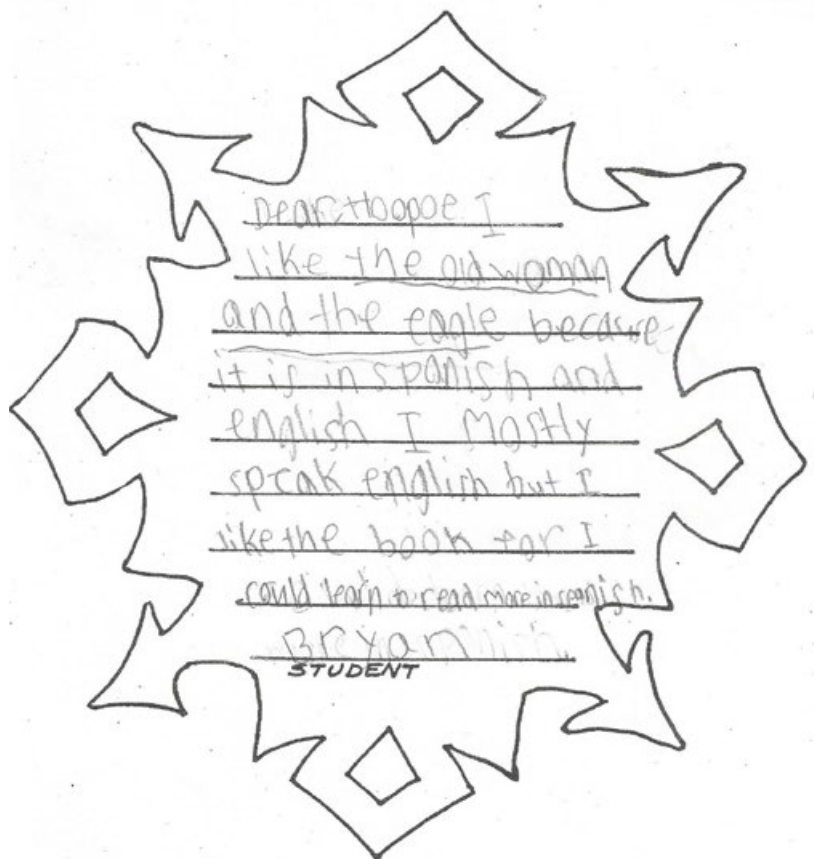 Dear Hoopoe I
like the old woman
and the eagle because
it is in spanish and
english I Mostly
speak english but I
like the book for I
could learn to read more in spanish.
Bryan
STUDENT